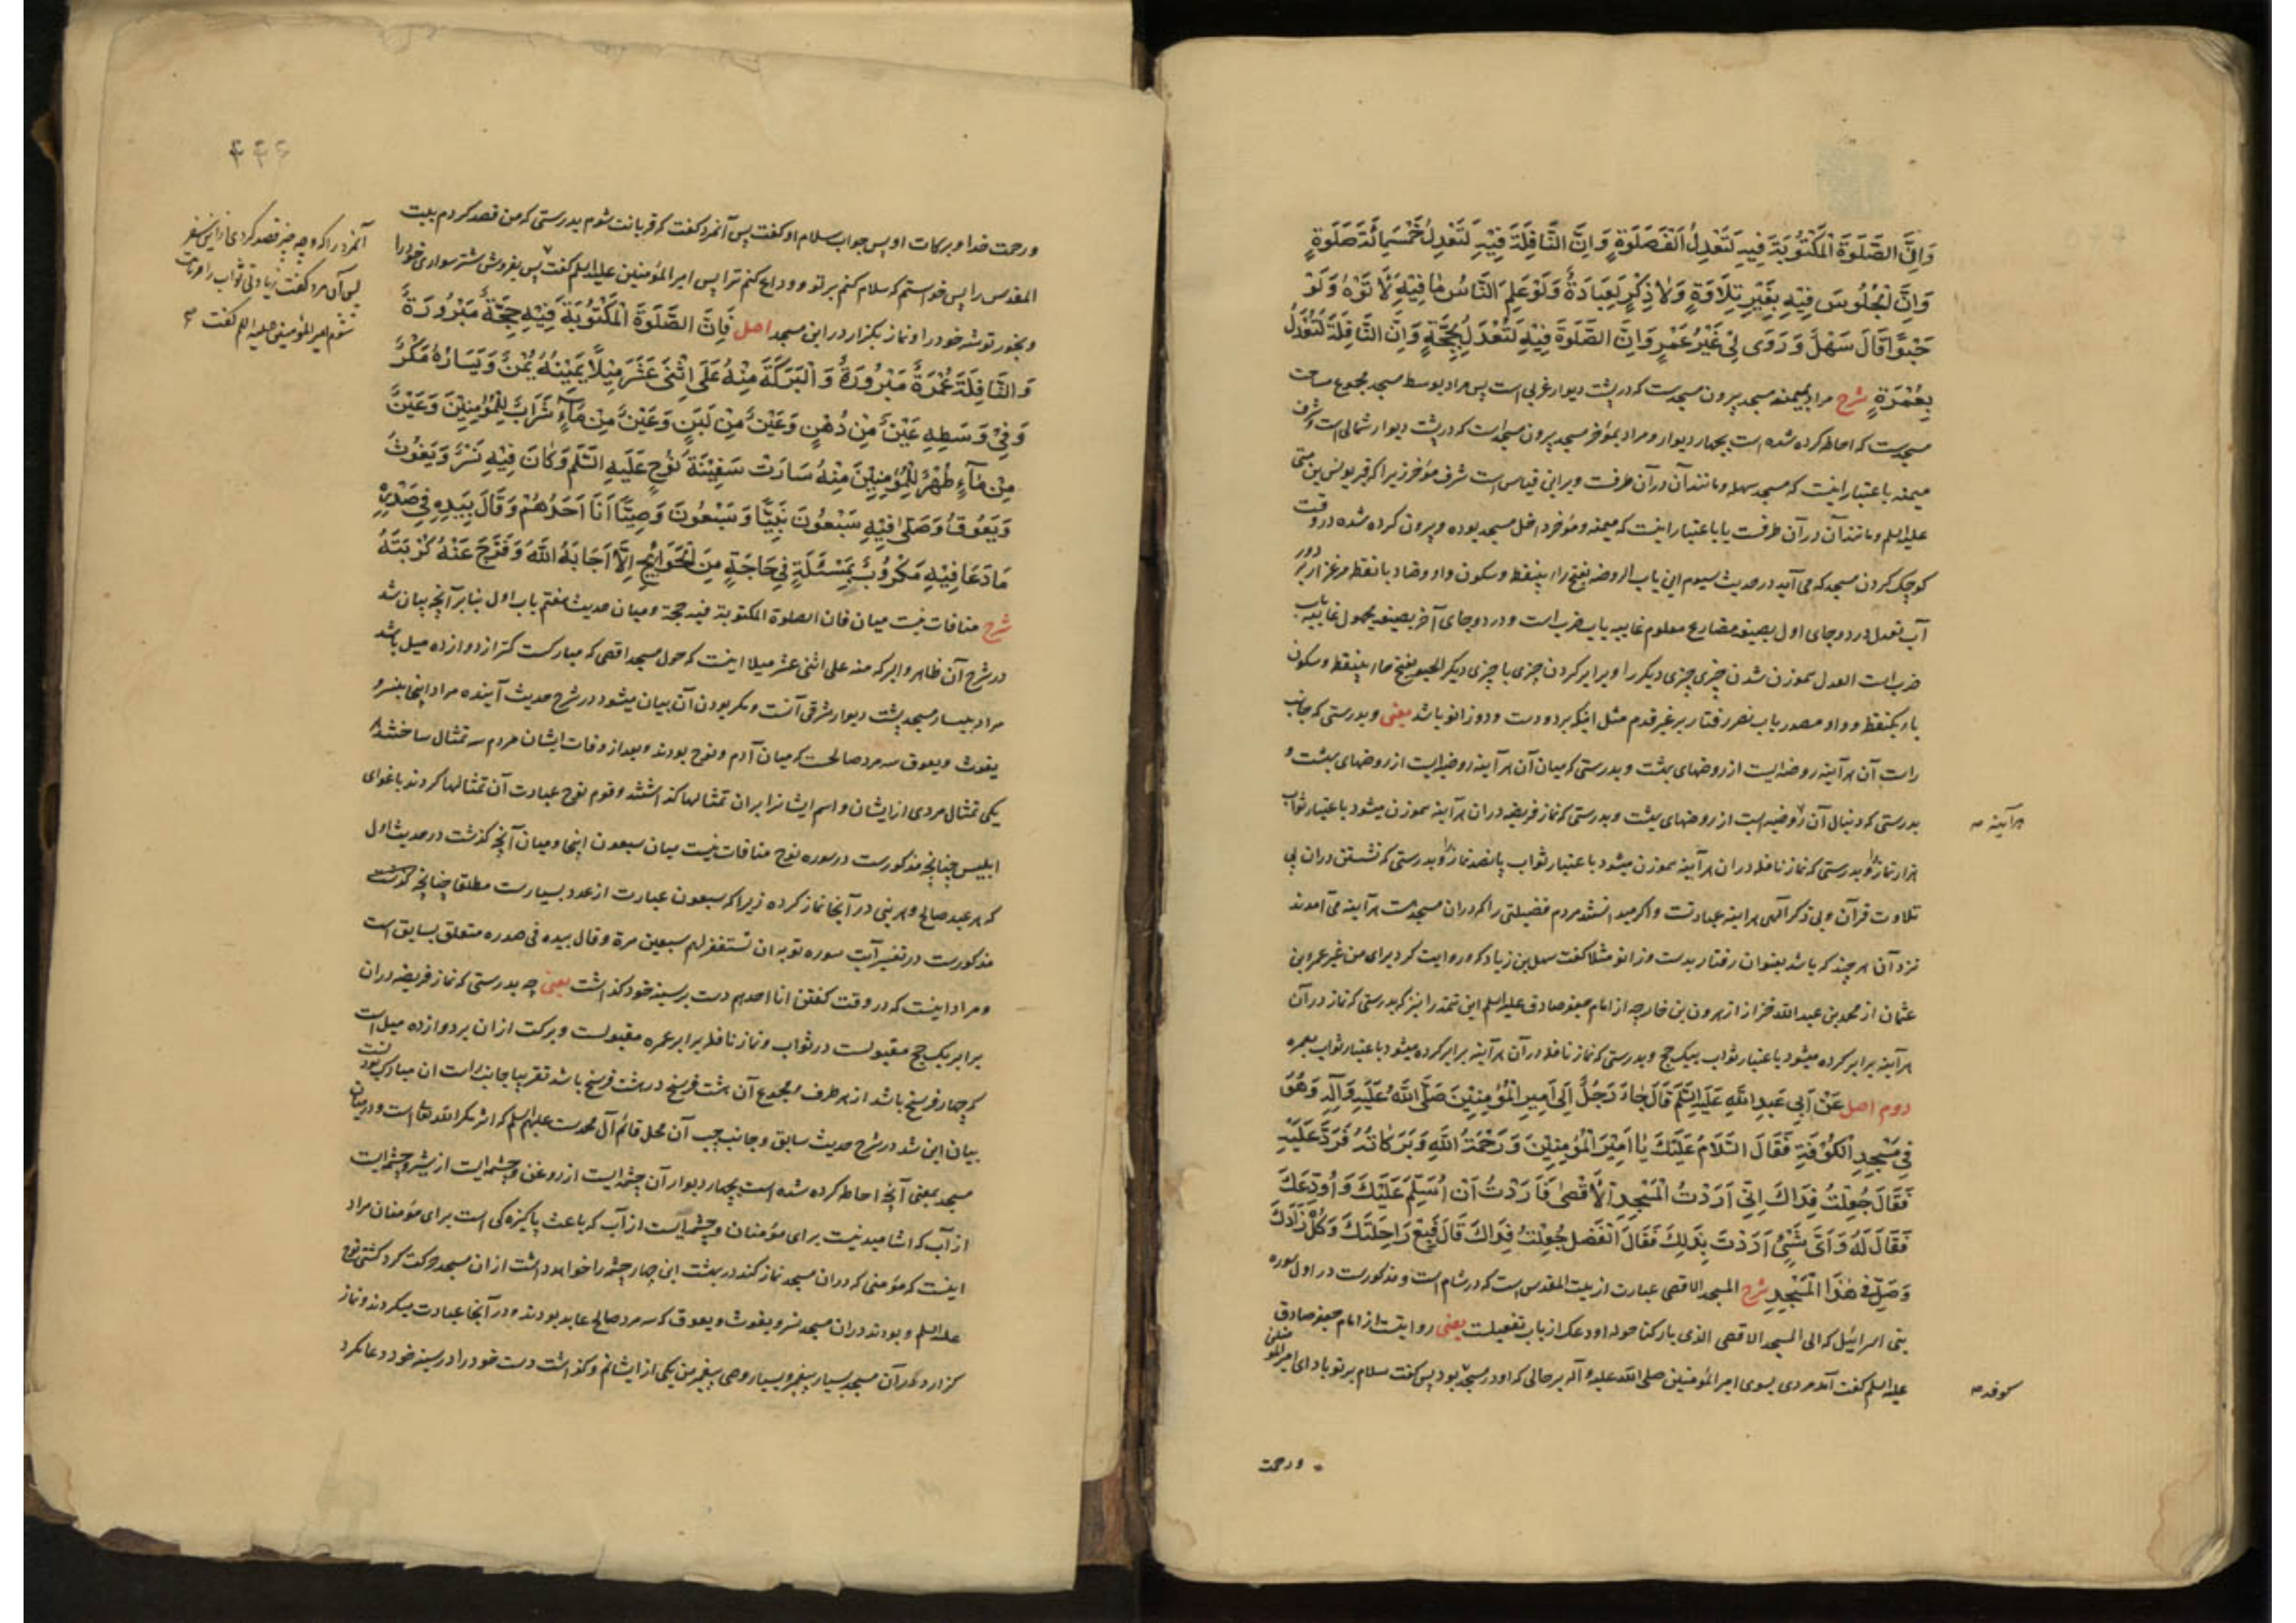 وَاِنَّ الصَّلٰوةَ الْمَكْتُوبَةَ فِيهِ لَتَعْدِلُ اَلْفَ صَلٰوةٍ وَاِنَّ النَّافِلَةَ فِيْهِ لَتَعْدِلُ خَمْسَمِائَةَ صَلٰوةٍ
وَاِنَّ الْجُلُوسَ فِيْهِ بِغَيْرِ تِلَاوَةٍ وَلَا ذِكْرٍ لَعِبَادَةٌ وَلَوْ عَلِمَ النَّاسُ مٰا فِيْهِ لَاَتَوْهُ وَلَوْ
حَبْوًا قَالَ سَهْلٌ وَرَوٰى لِىْ غَيْرُ عَمْرٍو وَاِنَّ الصَّلٰوةَ فِيْهِ لَتُعْدَلُ بِحَجَّةٍ وَاِنَّ النَّافِلَةَ لَتُعْدَلُ
بِعُمْرَةٍ شرح مراد بميمنه مسجد بيرون مسجدست كه در پشت ديوار غربى است پس مراد بوسط مسجد مجموع مساحت
مسجدست كه احاطه كرده شده است بچهار ديوار ومراد بمؤخر مسجد بيرون مسجد است كه در پشت ديوار شمالى است وشرف
ميمنه باعتبار اينست كه مسجد سهله ومانند آن در آن طرفست وبر اين قياس است شرف مؤخر زيرا كه قبر يونس بن متى
عليه السلم ومانند آن در آن طرفست يا باعتبار اينست كه ميمنه ومؤخر داخل مسجد بوده وبيرون كرده شده در وقت
كوچك كردن مسجد كه مى آيد در حديث سيوم اين باب الروضه بفتح راء بينقطه وسكون واو وضاد با نقطه مرغزار پر
آب تعدل در دو جاى اول بصيغه مضارع معلوم غايبه باب ضرب است ودر دو جاى آخر بصيغه مجهول غايبه باب
ضرب است العدل هموزن شدن چيزى چيزى ديگر را وبرابر كردن چيزى با چيزى ديگر الحبو بفتح حاء بينقطه وسكون
باء يكنقطه وواو مصدر باب نصر رفتار بر غير قدم مثل اينكه بر دو دست ودو زانو باشد يعنى وبدرستى كه جانب
راست آن هرآينه روضه ايست از روضهاى بهشت وبدرستى كه ميان آن هرآينه روضه ايست از روضهاى بهشت و
بدرستى كه دنبال آن روضه ايست از روضهاى بهشت وبدرستى كه نماز فريضه در ان هرآينه هموزن ميشود باعتبار ثواب
هرآينه صه
هزار نماز را وبدرستى كه نماز نافله در ان هرآينه هموزن ميشود باعتبار ثواب پانصد نماز را وبدرستى كه نشستن در ان بى
تلاوت قرآن وبى ذكر الهى هرآينه عبادتست واگر ميدانستند مردم فضيلتى را كه در ان مسجدست هرآينه مى آمدند
نزد آن هرچند كه باشد بعنوان رفتار بدست وزانو مثلا گفت سهل بن زياد كه وروايت كرد براى من غير عمرو بن
عثمان از محمد بن عبد الله خزاز از هرون بن خارجه از امام جعفر صادق عليه السلم اين تتمه را نيز كه بدرستى كه نماز در آن
هرآينه برابر كرده ميشود باعتبار ثواب بيك حج وبدرستى كه نماز نافله در آن هرآينه برابر كرده ميشود باعتبار ثواب بعمره
دوم اصل عَنْ اَبِى عَبْدِ اللّٰهِ عَلَيْهِ السَّلَمُ قَالَ جَاءَ رَجُلٌ اِلٰى اَمِيرِ الْمُؤْمِنِيْنَ صَلَّى اللّٰهُ عَلَيْهِ وَآلِهِ وَهُوَ
فِى مَسْجِدِ الْكُوْفَةِ فَقَالَ السَّلَامُ عَلَيْكَ يٰا اَمِيْرَ الْمُؤْمِنِيْنَ وَرَحْمَةُ اللّٰهِ وَبَرَكَاتُهُ فَرَدَّ عَلَيْهِ
فَقَالَ جُعِلْتُ فِدَاكَ اِنِّى اَرَدْتُ الْمَسْجِدَ الْاَقْصٰى فَاَرَدْتُ اَنْ اُسَلِّمَ عَلَيْكَ وَاُوَدِّعَكَ
فَقَالَ لَهُ وَاَىَّ شَىْءٍ اَرَدْتَ بِذٰلِكَ فَقَالَ الْفَضْلَ جُعِلْتُ فِدَاكَ قَالَ فَبِعْ رَاحِلَتَكَ وَكُلْ زَادَكَ
وَصَلِّ فِى هٰذَا الْمَسْجِدِ شرح المسجد الاقصى عبارت از بيت المقدس است كه در شام است ومذكورست در اول سوره
بنى اسرائيل كه الى المسجد الاقصى الذى باركنا حوله اودعك از باب تفعيلست يعنى روايتست از امام جعفر صادق
عليه السلم گفت آمد مردى بسوى امير المؤمنين صلى الله عليه وآله بر حالى كه او در مسجد بود پس گفت سلام بر تو باد اى امير المؤمنين
كوفه صه
ورحمت
۴۴۶
ورحمت خدا وبركات او پس جواب سلام او گفت پس آنمرد گفت كه قربانت شوم بدرستى كه من قصد كردم بيت
المقدس را پس خواستم كه سلام كنم بر تو ووداع كنم ترا پس امير المؤمنين عليه السلم گفت پس بفروش شتر سوارى خود را
وبخور توشه خود را ونماز بگزار در اين مسجد اصل فَاِنَّ الصَّلٰوةَ الْمَكْتُوبَةَ فِيْهِ حِجَّةٌ مَبْرُورَةٌ
آنمرد را كه وچه چيز قصد كردى از اين سفر
پس آن مرد گفت زيادتى ثواب را قربانت
شوم امير المؤمنين عليه السلم گفت صه
وَالنَّافِلَةَ عُمْرَةٌ مَبْرُورَةٌ وَالْبَرَكَةَ مِنْهُ عَلٰى اثْنَىْ عَشَرَ مِيْلًا يَمِيْنُهُ يُمْنٌ وَيَسَارُهُ مَكْرٌ
وَفِىْ وَسَطِهِ عَيْنٌ مِنْ دُهْنٍ وَعَيْنٌ مِنْ لَبَنٍ وَعَيْنٌ مِنْ مَآءٍ شَرَابٌ لِلْمُؤْمِنِيْنَ وَعَيْنٌ
مِنْ مَآءٍ طُهْرٌ لِلْمُؤْمِنِيْنَ مِنْهُ سَارَتْ سَفِيْنَةُ نُوْحٍ عَلَيْهِ السَّلَمُ وَكَانَ فِيْهِ نَسْرٌ وَيَغُوثُ
وَيَعُوقُ وَصَلّٰى فِيْهِ سَبْعُونَ نَبِيًّا وَسَبْعُونَ وَصِيًّا اَنَا اَحَدُهُمْ وَقَالَ بِيَدِهِ فِى صَدْرِهِ
مَا دَعَا فِيْهِ مَكْرُوبٌ بِمَسْئَلَةٍ فِى حَاجَةٍ مِنَ الْحَوَائِجِ اِلَّا اَجَابَهُ اللّٰهُ وَفَرَّجَ عَنْهُ كُرْبَتَهُ
شرح منافات نيست ميان فان الصلوة المكتوبة فيه حجة وميان حديث هفتم باب اول بنابر آنچه بيان شد
در شرح آن ظاهر والبركه منه على اثنى عشر ميلا اينست كه حول مسجد اقصى كه مباركست كمتر از دوازده ميل باشد
مراد بيسار مسجد پشت ديوار شرقى آنست ومكر بودن آن بيان ميشود در شرح حديث آينده مراد اينجا بنسر و
يغوث ويعوق سه مرد صالحست كه ميان آدم ونوح بودند وبعد از وفات ايشان مردم سه تمثال ساختند
يكى تمثال مردى از ايشان واسم ايشان را بر ان تمثالها گذاشتند وقوم نوح عبادت آن تمثالها كردند باغواى
ابليس چنانچه مذكورست در سوره نوح منافات نيست ميان سبعون اينجا وميان آنچه گذشت در حديث اول
كه هر عبد صالح وهر نبى در آنجا نماز كرده زيرا كه سبعون عبارت از عدد بسيارست مطلقا چنانچه گذشت
مذكورست در تفسير آيت سوره توبه ان تستغفر لهم سبعين مرة وقال بيده فى صدره متعلق بسابق است
ومراد اينست كه در وقت گفتن انا احدهم دست بر سينه خود گذاشت يعنى چه بدرستى كه نماز فريضه در ان
برابر يك حج مقبولست در ثواب ونماز نافله برابر عمره مقبولست وبركت از ان بر دوازده ميل است
كه چهار فرسخ باشد از هر طرف ومجموع آن هشت فرسخ در هشت فرسخ باشد تقريبا جانب راست ان مبارك بودنست
بيان اين شد در شرح حديث سابق وجانب چپ آن محل قائم آل محمدست عليهم السلم كه اثر مكر الله تعالى است ودر ميان
مسجد بمعنى آنچه احاطه كرده شده است بچهار ديوار آن چشمه ايست از روغن وچشمه ايست از شير وچشمه ايست
از آب كه اشاميدنيست براى مؤمنان وچشمه ايست از آب كه باعث پاكيزه كى است براى مؤمنان مراد
اينست كه مؤمنى كه در ان مسجد نماز كند در بهشت اين چهار چشمه را خواهد داشت از ان مسجد حركت كرد كشتى نوح
عليه السلم وبودند در ان مسجد نسر ويغوث ويعوق كه سه مرد صالح عابد بودند ودر آنجا عبادت ميكردند ونماز
گزارد در آن مسجد بسيار پيغمبر وبسيار وصى پيغمبر من يكى از ايشانم وگذاشت دست خود را در سينه خود دعا نكرد